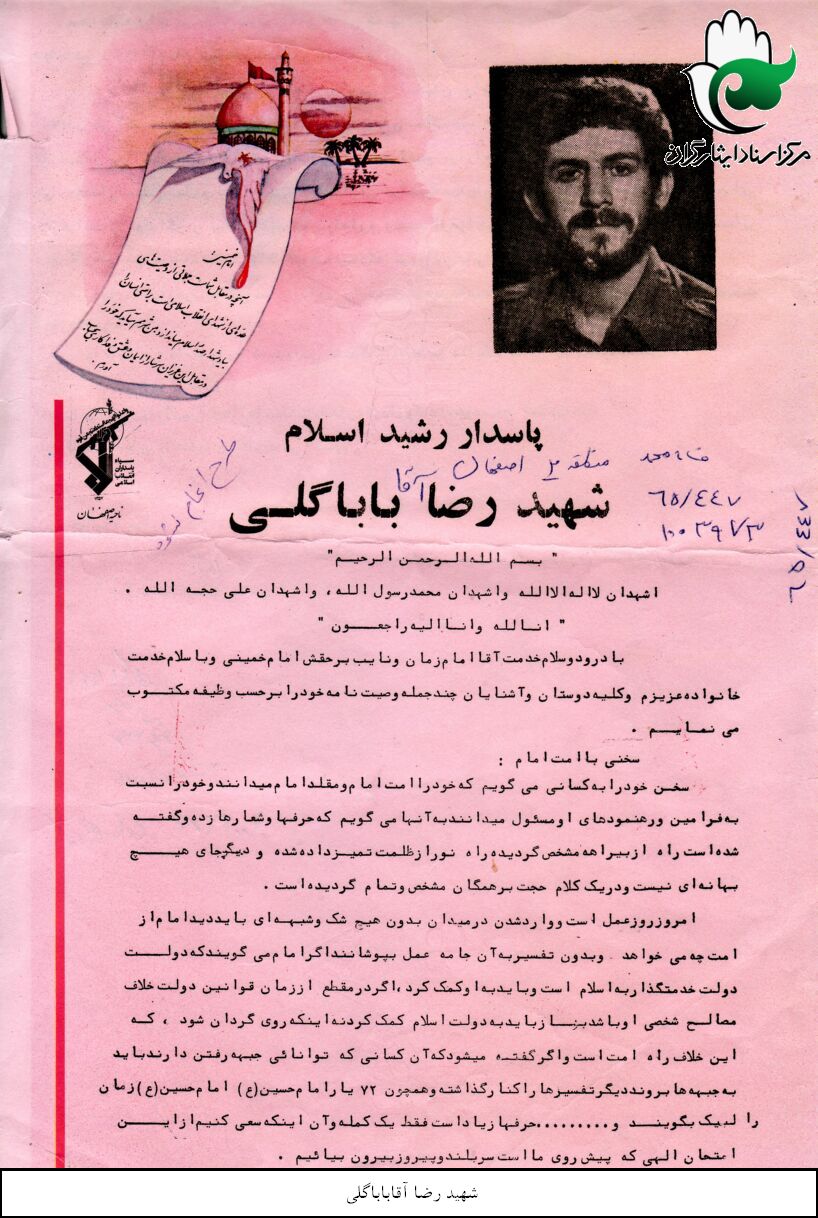 مرکز اسناد ایثارگران
امام خمینی:
سپاه
پاسداران
انقلاب
اسلامی
ناحیه اصفهان
پاسدار رشید اسلام
منطقه ۲ اصفهان
شهید رضا آقا باباگلی
۶۵/۴۴۷
۱۰۰۳۹۷۳
طرح انجام نشود
" بسم الله الرحمن الرحیم"
اشهدان لااله الاالله واشهدان محمدرسول الله، واشهدان علی حجه الله .
" انالله واناالیه راجعون "
با درود وسلام خدمت آقا امام زمان ونایب برحقش امام خمینی وبا سلام خدمت
خانواده عزیزم وکلیه دوستان وآشنایان چندجمله وصیت نامه خودرا برحسب وظیفه مکتوب
می نمایم .
سخنی با امت امام :
سخن خودرا به کسانی می گویم که خودرا امت امام ومقلد امام میدانند وخودرا نسبت
به فرامین ورهنمودهای او مسئول میدانند به آنها می گویم که حرفها وشعارها زده وگفته
شده است راه از بیراهه مشخص گردیده راه نور از ظلمت تمیز داده شده و دیگرجای هیچ
بهانه ای نیست ودریک کلام حجت برهمگان مشخص وتمام گردیده است .
امروز روز عمل است ووارد شدن درمیدان بدون هیچ شک وشبهه ای باید دید امام از
امت چه می خواهد وبدون تفسیر به آن جامه عمل بپوشانند اگر امام می گویند که دولت
دولت خدمتگذار به اسلام است وباید به او کمک کرد ،اگر درمقطع اززمان قوانین دولت خلاف
مصالح شخصی او باشد باز باید به دولت اسلام کمک کرد نه اینکه روی گردان شود ، که
این خلاف راه امت است واگر گفته میشود که آن کسانی که توانائی جبهه رفتن دارند باید
به جبهه ها بروند دیگر تفسیرها را کنار گذاشته وهمچون ۷۲ یار امام حسین(ع) امام حسین(ع)زمان
را لبیک بگویند و.........حرفها زیاد است فقط یک کمله وآن اینکه سعی کنیم از این
امتحان الهی که پیش روی ما است سربلند وپیروز بیرون بیائیم .
شهید رضا آقاباباگلی